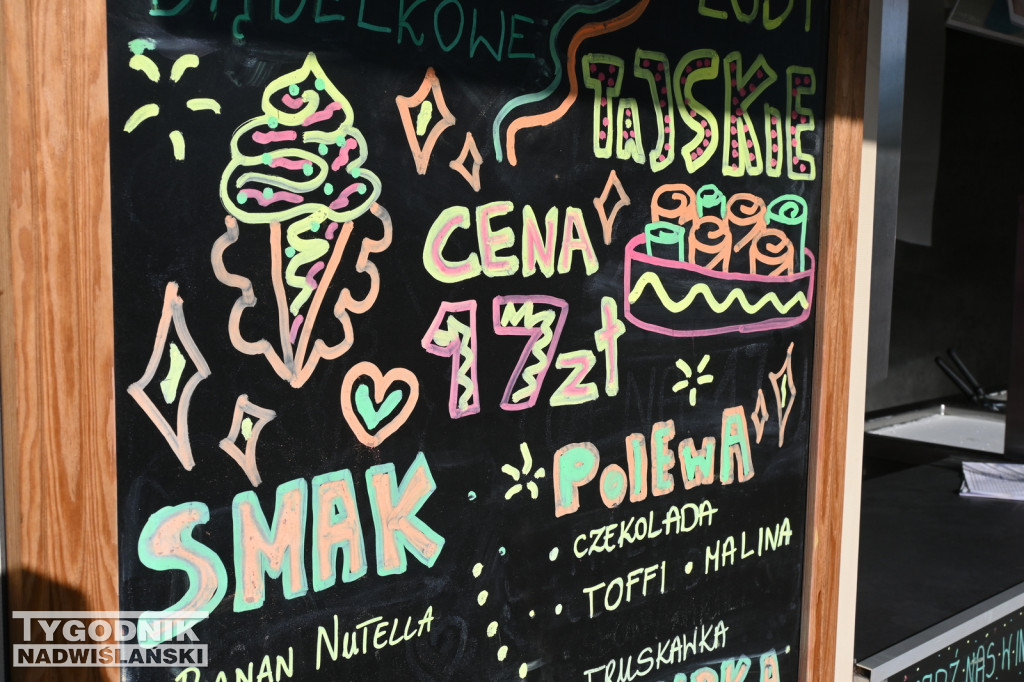 BĄBELKOWE
LODY
TAJSKIE
CENA
17zł
SMAK
BANAN NUTELLA
POLEWA
• CZEKOLADA
• TOFFI • MALINA
TRUSKAWKA
TYGODNIK
NADWIŚLAŃSKI